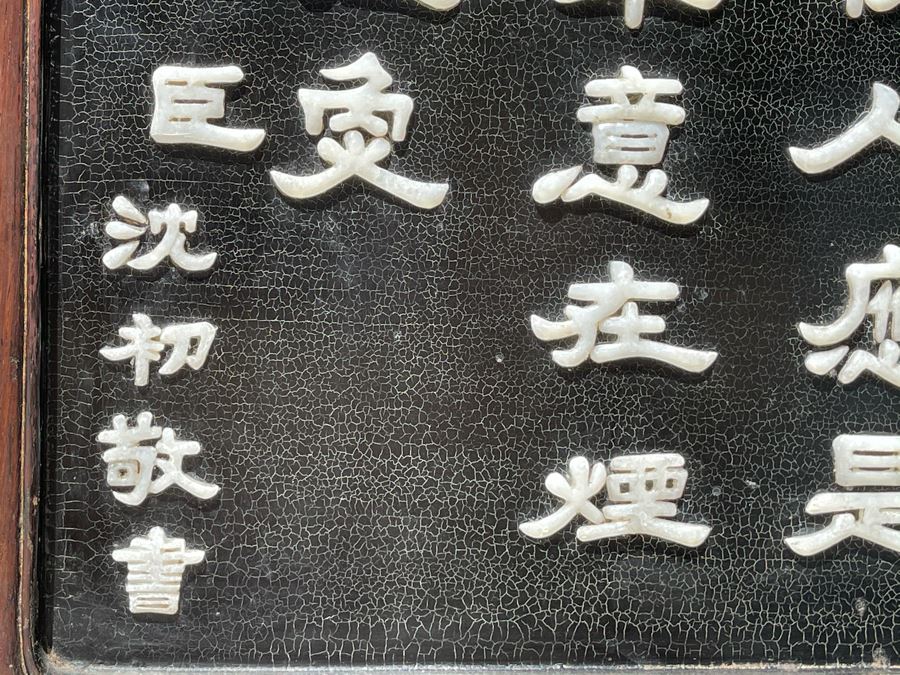 人應是
意在煙
愛
臣沈初敬書